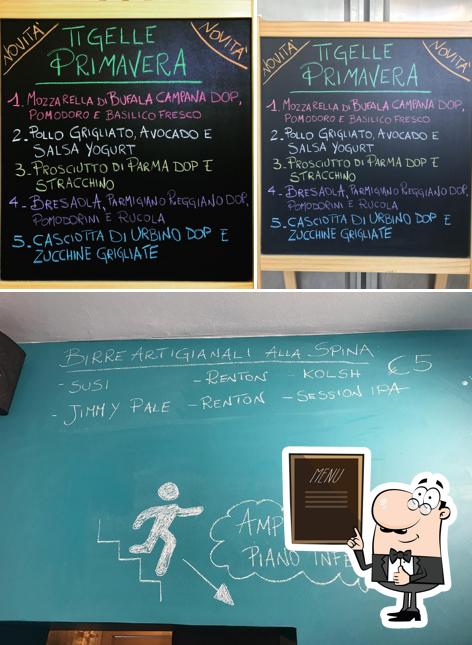 NOVITÀ
TIGELLE
PRIMAVERA
NOVITÀ
1. MOZZARELLA DI BUFALA CAMPANA DOP,
POMODORO E BASILICO FRESCO
2. POLLO GRIGLIATO, AVOCADO E
SALSA YOGURT
3. PROSCIUTTO DI PARMA DOP E
STRACCHINO
4. BRESAOLA, PARMIGIANO REGGIANO DOP,
POMODORINI E RUCOLA
5. CASCIOTTA DI URBINO DOP E
ZUCCHINE GRIGLIATE
NOVITÀ
TIGELLE
PRIMAVERA
NOVITÀ
1. MOZZARELLA DI BUFALA CAMPANA DOP,
POMODORO E BASILICO FRESCO
2. POLLO GRIGLIATO, AVOCADO E
SALSA YOGURT
3. PROSCIUTTO DI PARMA DOP E
STRACCHINO
4. BRESAOLA, PARMIGIANO REGGIANO DOP,
POMODORINI E RUCOLA
5. CASCIOTTA DI URBINO DOP E
ZUCCHINE GRIGLIATE
BIRRE ARTIGIANALI ALLA SPINA €5
- SUSI - RENTON - KOLSH
- JIMMY PALE - RENTON - SESSION IPA
MENU
PIANO